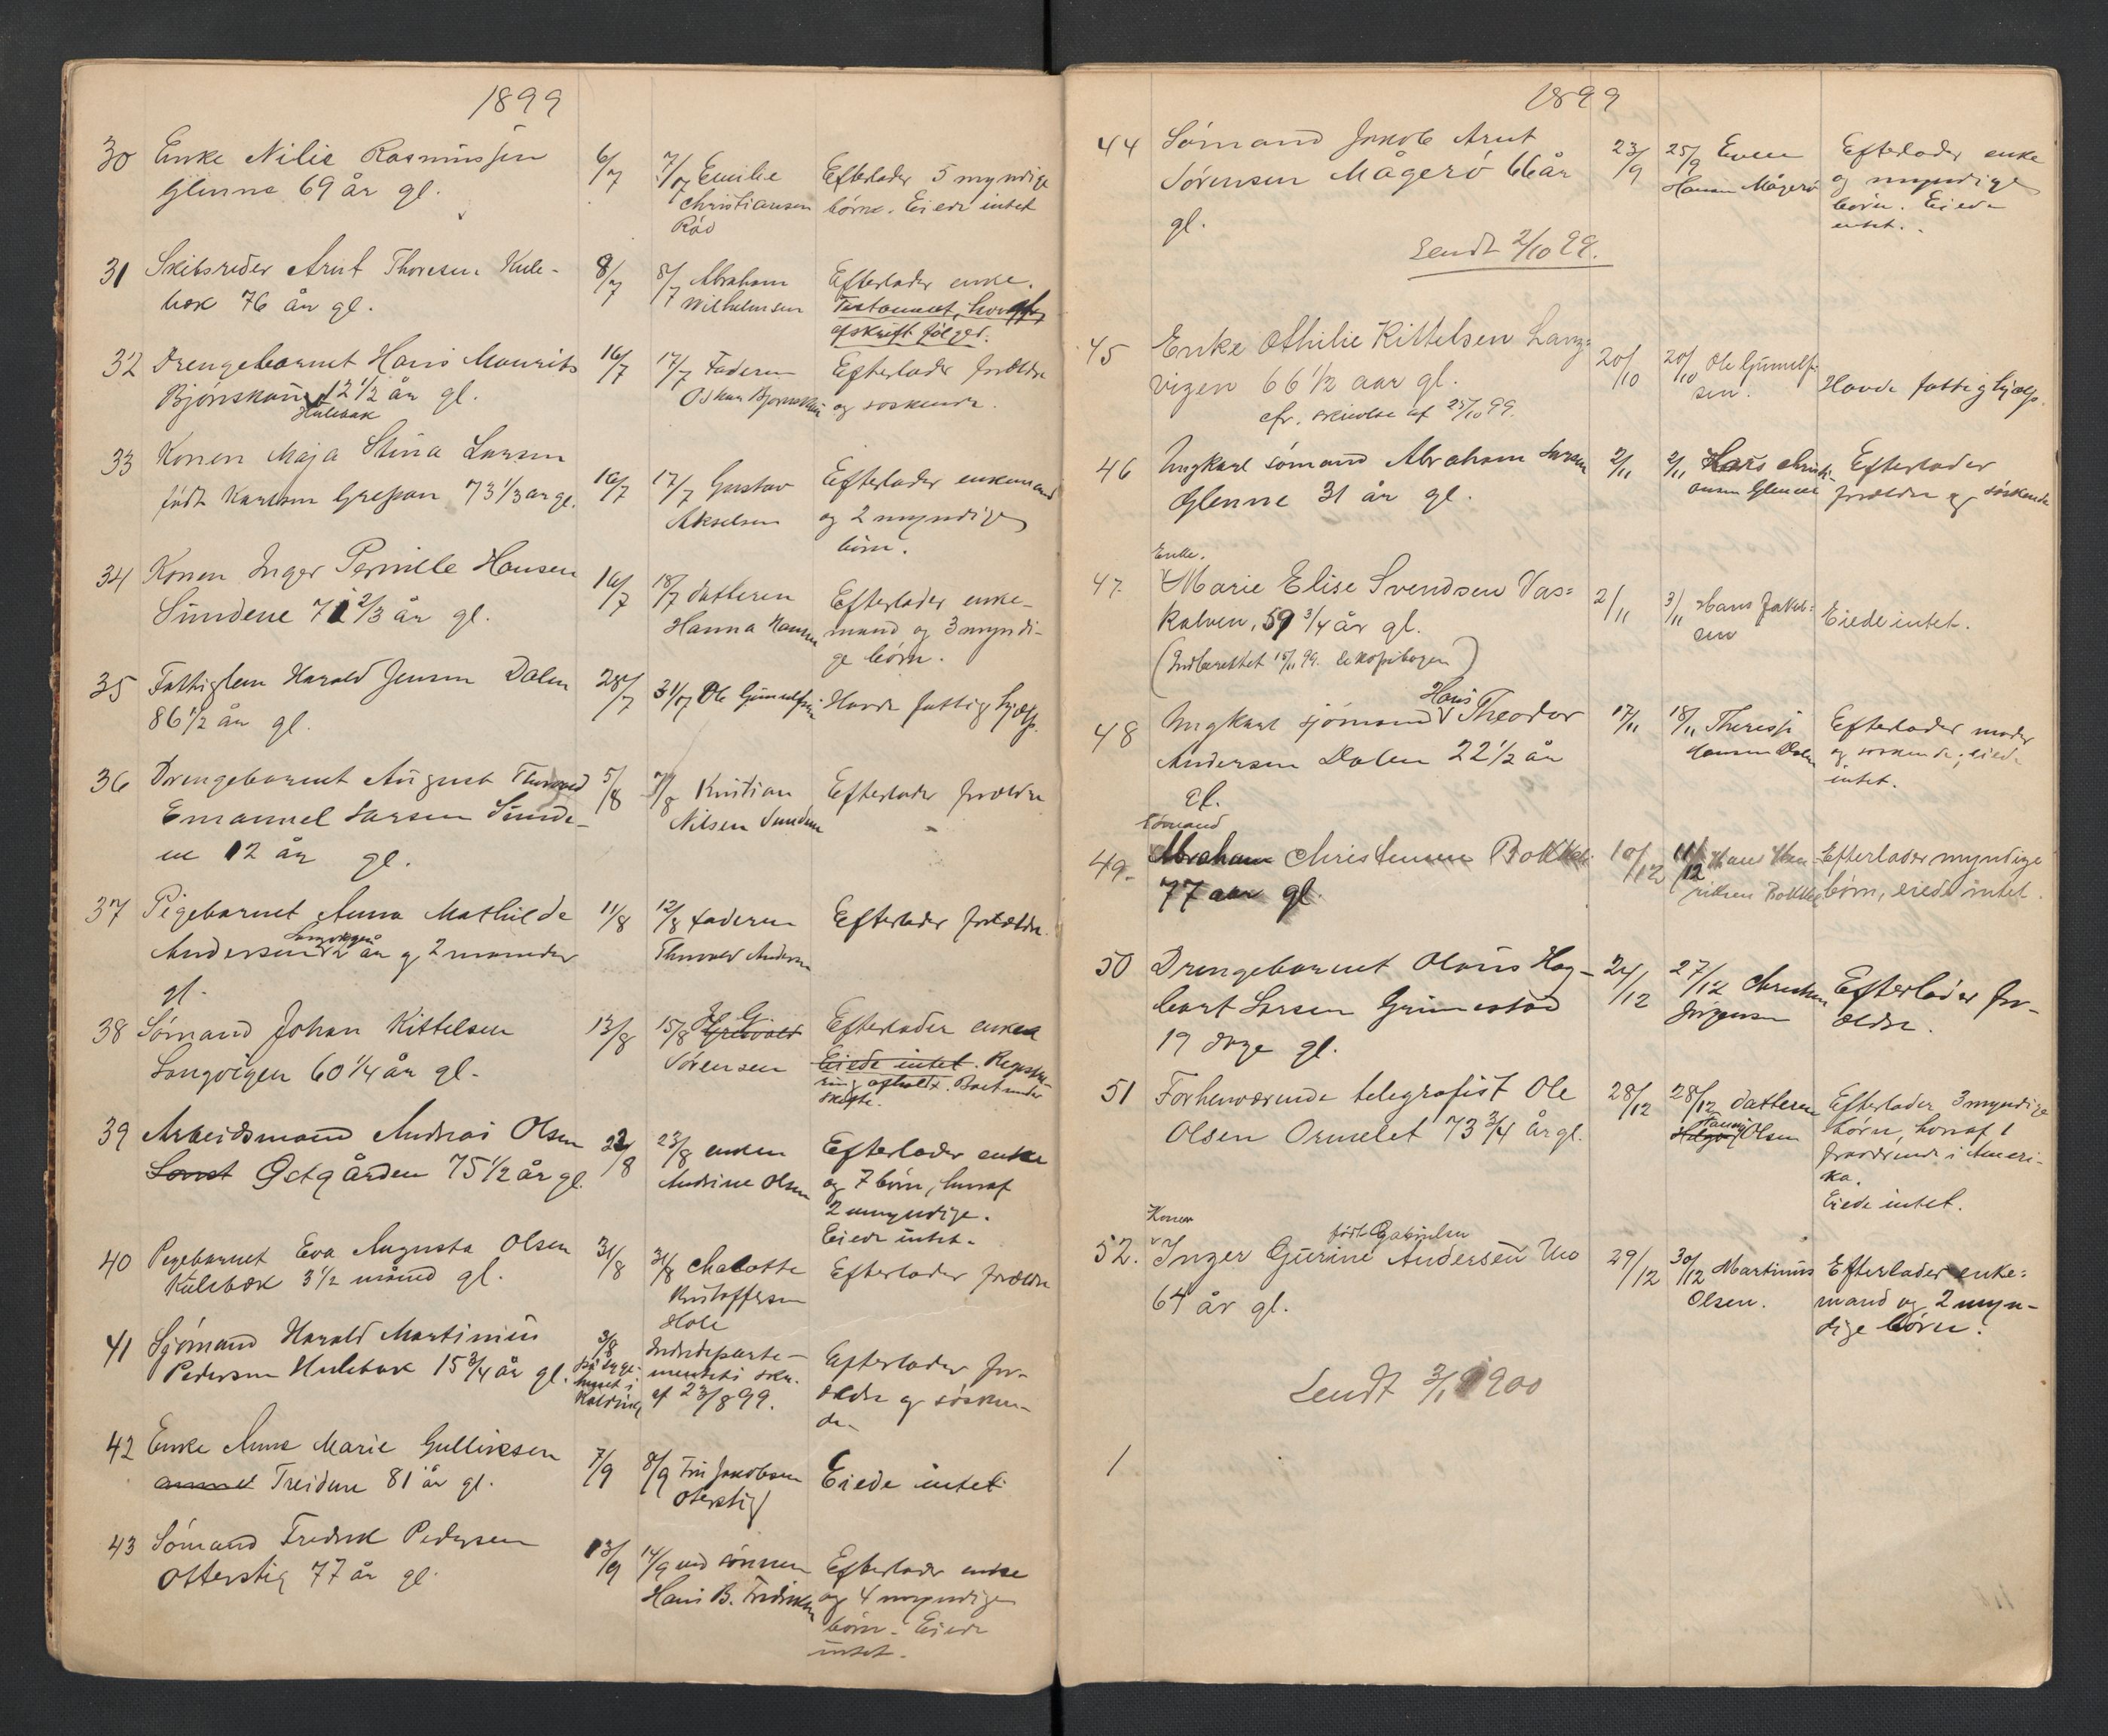 1899
30 Enke Nilie Rasmussen 6/7 7/7 Emilie Efterlader 5 myndige
Glenne 69 år gl. Christiansen børn. Eiede intet
Rød
31 Skibsreder Arnt Thoresen Hule- 8/7 8/7 Abraham Efterlader enke.
bæk 76 år gl. Wilhelmsen Testament, hvoraf
afskrift følger.
32 Drengebarnet Hans Mourits 16/7 17/7 Faderen Efterlader forældre
Bjørnskau 12 1/2 år gl. Oskar Bjørnskau og søskende.
Hulebæk
33 Konen Maja Stina Larsen
født Karlson Grepan 73 1/3 år gl. 16/7 17/7 Gustav Efterlader enkemand
Akselsen og 2 myndige
børn.
34 Konen Inger Pernille Hansen 16/7 18/7 datteren Efterlader enke-
Sundene 71 2/3 år gl. Hanna Hansen mand og 3 myndi-
ge børn.
35 Fattiglem Harald Jensen Dalen 28/7 31/7 Ole Gunnulfsen Havde fattighjælp.
86 1/2 år gl.
36 Drengebarnet August Thorvald 5/8 7/8 Kristian Efterlader forældre
Emanuel Larsen Sunde- Nilsen Sundene
ne 12 år gl.
37 Pigebarnet Anna Mathilde 11/8 12/8 faderen Efterlader forældre.
Langvigen
Andersen 2 år og 2 maaneder Thorvald Andersen
gl.
38 Sømand Johan Kittelsen 13/8 15/8 G. Efterlader enke
Langvigen 60 1/4 år gl. Sørensen Eiede intet. Registre-
ring afholdt. Boet under
skifte.
39 Arbeidsmand Andreas Olsen 22/8 23/8 enken Efterlader enke
Østgården 75 1/2 år gl. Andrine Olsen og 7 børn, hvoraf
2 umyndige.
Eiede intet.
40 Pigebarnet Eva Augusta Olsen 31/8 31/8 Chalotte Efterlader forældre
Hulebæk 3 1/2 måned gl. Kristoffersen
Hole
41 Sjømand Harald Martinius 3/8 Indredeparte- Efterlader for-
Pedersen Hulebæk 15 3/4 år gl. på syge- mentets skr. ældre og søsken-
huset i af 23/8 99. de
Kolding
42 Enke Anne Marie Gulliksen 7/9 8/9 Fru Jakobsen Eiede intet
Treidene 81 år gl. Oterstig
43 Sømand Fredrik Pedersen 13/9 14/9 ved sønnen Efterlader enke
Otterstig 77 år gl. Hans B. Fredriksen og 4 myndige
børn. Eiede
intet.
1899
44 Sømand Jakob Arnt 23/9 25/9 Even Efterlader enke
Sørensen Mågerø 66 år Hansen Mågerø og myndige
gl. børn. Eiede
intet.
Sendt 2/10 99.
45 Enke Othilie Kittelsen Lang- 20/10 20/10 Ole Gunnulf-
vigen 66 1/2 aar gl. sen. Havde fattighjælp.
cfr. skrivelse af 25/10 99.
46 Ungkarl sømand Abraham Larsen 2/11 2/11 Lars Christi- Efterlader
Glenne 31 år gl. ansen Glenne forældre og søskende
Enke.
47. Marie Elise Svendsen Vas- 2/11 3/11 Hans Jakob- Eiede intet.
kalven, 59 3/4 år gl. sen
(Indberettet 15/11 99. se kopibogen)
Hans
48 Ungkarl sjømand Theodor 17/11 18/11 Theresje Efterlader moder
Andersen Dalen 22 1/2 år Hansen Dalen og søskende, eiede
gl. intet.
Sømand
49. Abraham Christensen Bakken 10/12 11/12 Hans Hen- Efterlader myndige
77 aar gl. riksen Bakken børn, eiede intet.
50 Drengebarnet Olaus Hag- 24/12 27/12 Christian Efterlader for-
bart Larsen Grimestad Jørgensen ældre.
19 dage gl.
51 Forhenværende telegrafist Ole 28/12 28/12 datteren Efterlader 3 myndige
Olsen Ormelet 73 3/4 år gl. Hanna Olsen børn, hvoraf 1
fraværende i Ameri-
ka.
Eiede intet.
Konen født Gabrielsen
52. Inger Gurine Andersen Mo 29/12 30/12 Martinius Efterlader enke-
64 år gl. Olsen. mand og 2 myn-
dige børn.
Sendt 3/1 1900
1